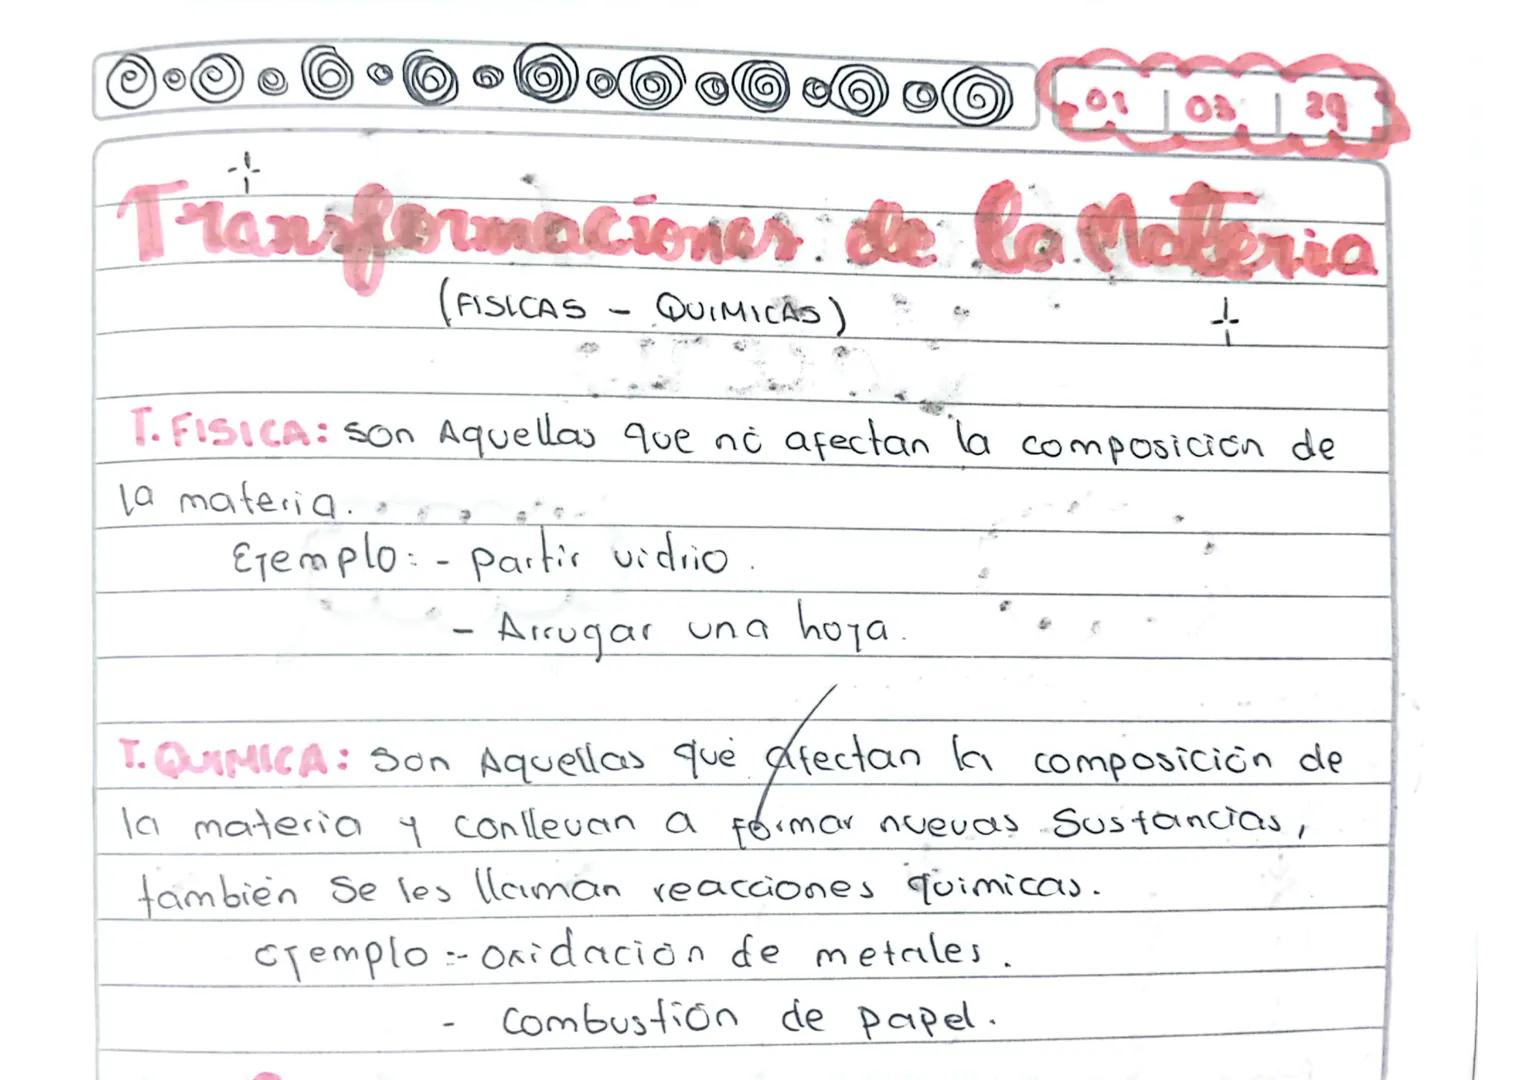 01 | 03 | 29
Transformaciones de la Materia
(FISICAS - QUIMICAS)
T. FISICA: son Aquellas que no afectan la composición de
la materia.
Ejemplo: - Partir vidrio.
- Arrugar una hoja.
T. QUIMICA: Son Aquellas que afectan la composición de
la materia y conllevan a formar nuevas Sustancias,
también Se les llaman reacciones quimicas.
ejemplo :- oxidación de metales.
- combustión de papel.